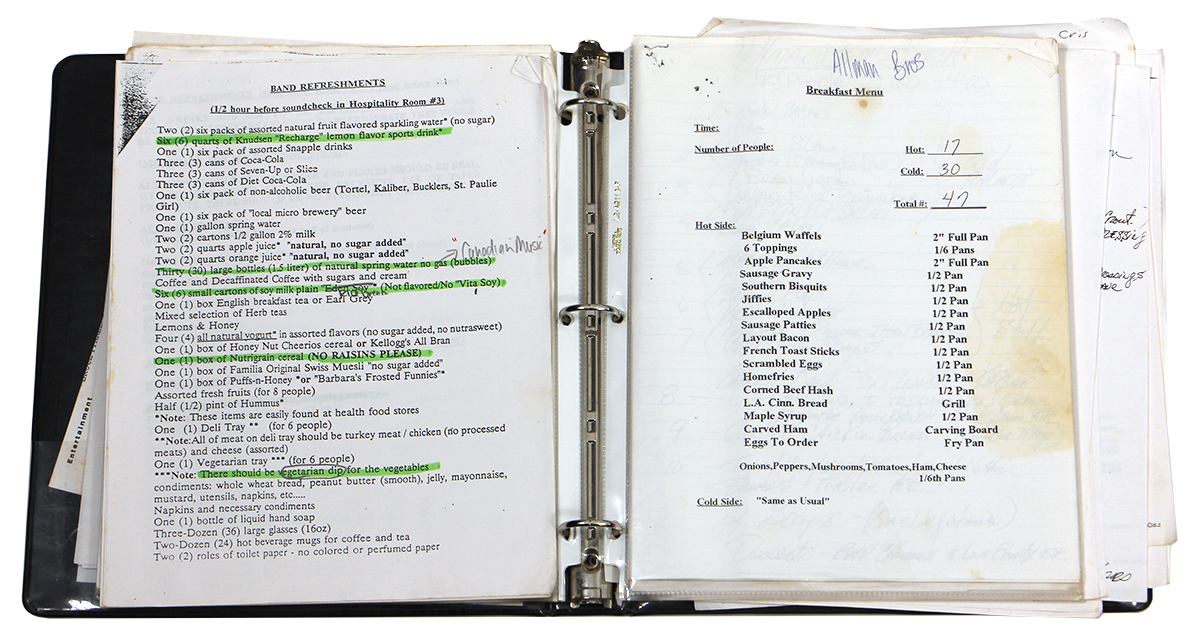 BAND REFRESHMENTS
(1/2 hour before soundcheck in Hospitality Room #3)
Two (2) six packs of assorted natural fruit flavored sparkling water* (no sugar)
Six (6) quarts of Knudsen "Recharge" lemon flavor sports drink*
One (1) six pack of assorted Snapple drinks
Three (3) cans of Coca-Cola
Three (3) cans of Seven-Up or Slice
Three (3) cans of Diet Coca-Cola
One (1) six pack of non-alcoholic beer (Tortel, Kaliber, Bucklers, St. Paulie
Girl)
One (1) six pack of "local micro brewery" beer
One (1) gallon spring water
Two (2) cartons 1/2 gallon 2% milk
Two (2) quarts apple juice* "natural, no sugar added"
Two (2) quarts orange juice* "natural, no sugar added"
"Canadian Music"
Thirty (30) large bottles (1.5 liter) of natural spring water no gas (bubbles)
Coffee and Decaffinated Coffee with sugars and cream
Six (6) small cartons of soy milk plain "Eden Soy" (Not flavored/No "Vita Soy)
One (1) box English breakfast tea or Earl Grey
Mixed selection of Herb teas
Lemons & Honey
Four (4) all natural yogurt* in assorted flavors (no sugar added, no nutrasweet)
One (1) box of Honey Nut Cheerios cereal or Kellogg's All Bran
One (1) box of Nutrigrain cereal (NO RAISINS PLEASE)
One (1) box of Familia Original Swiss Muesli "no sugar added"
One (1) box of Puffs-n-Honey *or "Barbara's Frosted Funnies"*
Assorted fresh fruits (for 8 people)
Half (1/2) pint of Hummus*
*Note: These items are easily found at health food stores
One (1) Deli Tray ** (for 6 people)
**Note:All of meat on deli tray should be turkey meat / chicken (no processed
meats) and cheese (assorted)
One (1) Vegetarian tray *** (for 6 people)
***Note: There should be vegetarian dip for the vegetables
condiments: whole wheat bread, peanut butter (smooth), jelly, mayonnaise,
mustard, utensils, napkins, etc.....
Napkins and necessary condiments
One (1) bottle of liquid hand soap
Three-Dozen (36) large glasses (16oz)
Two-Dozen (24) hot beverage mugs for coffee and tea
Two (2) roles of toilet paper - no colored or perfumed paper
Entertainment
Allman Bros
Breakfast Menu
Time:
Number of People: Hot: 17
Cold: 30
Total #: 47
Hot Side:
Belgium Waffels 2" Full Pan
6 Toppings 1/6 Pans
Apple Pancakes 2" Full Pan
Sausage Gravy 1/2 Pan
Southern Bisquits 1/2 Pan
Jiffies 1/2 Pan
Escalloped Apples 1/2 Pan
Sausage Patties 1/2 Pan
Layout Bacon 1/2 Pan
French Toast Sticks 1/2 Pan
Scrambled Eggs 1/2 Pan
Homefries 1/2 Pan
Corned Beef Hash 1/2 Pan
L.A. Cinn. Bread Grill
Maple Syrup 1/2 Pan
Carved Ham Carving Board
Eggs To Order Fry Pan
Onions,Peppers,Mushrooms,Tomatoes,Ham,Cheese
1/6th Pans
Cold Side: "Same as Usual"
Cris